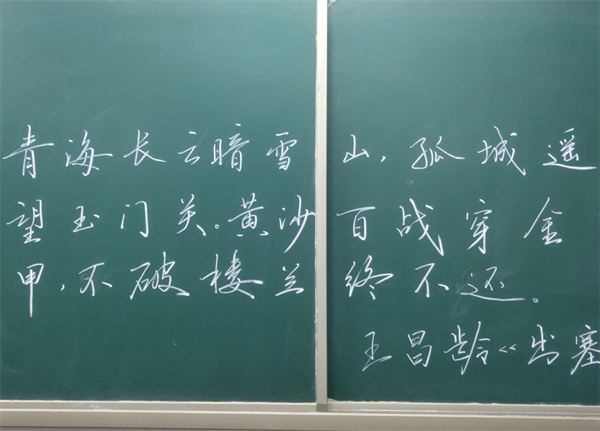 青海长云暗雪山，孤城遥
望玉门关。黄沙百战穿金
甲，不破楼兰终不还。
王昌龄《出塞